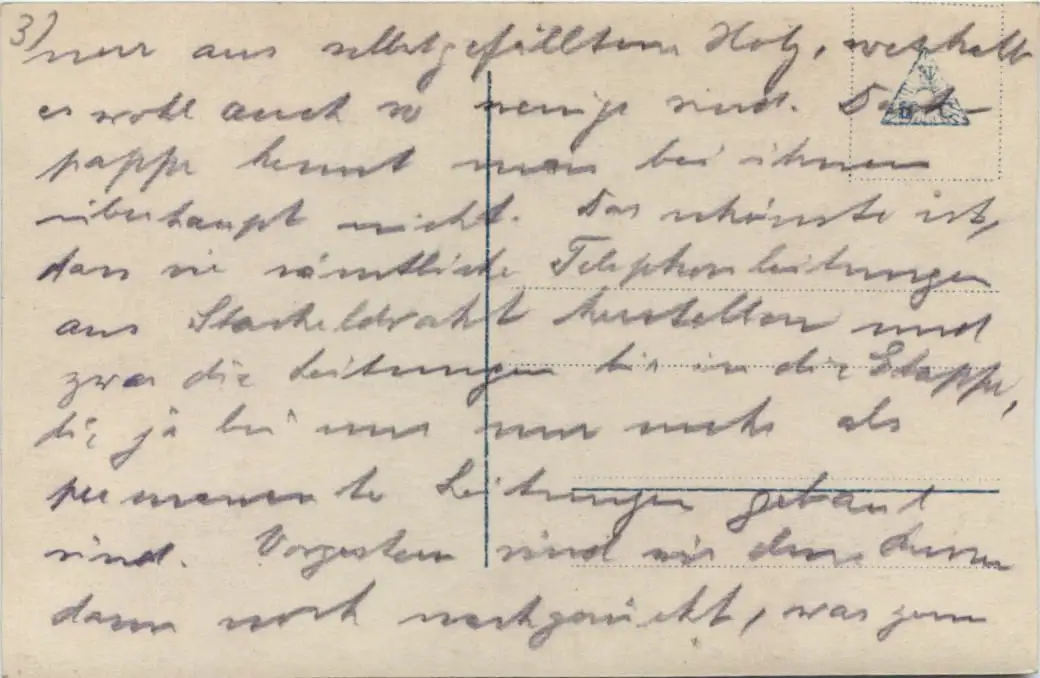 3)
nur aus selbstgefälltem Holz, weshalb
es wohl auch so wenige sind. Dach-
pappe kennt man bei ihnen
überhaupt nicht. Das schönste ist,
dass sie sämtliche Telephonleitungen
aus Stacheldraht herstellen und
zwar die Leitungen bis in die Etappe,
die ja bei uns nur mehr als
permanente Leitungen gebaut
sind. Vorgestern sind wir den Russen
dann noch nachgerückt, was zum